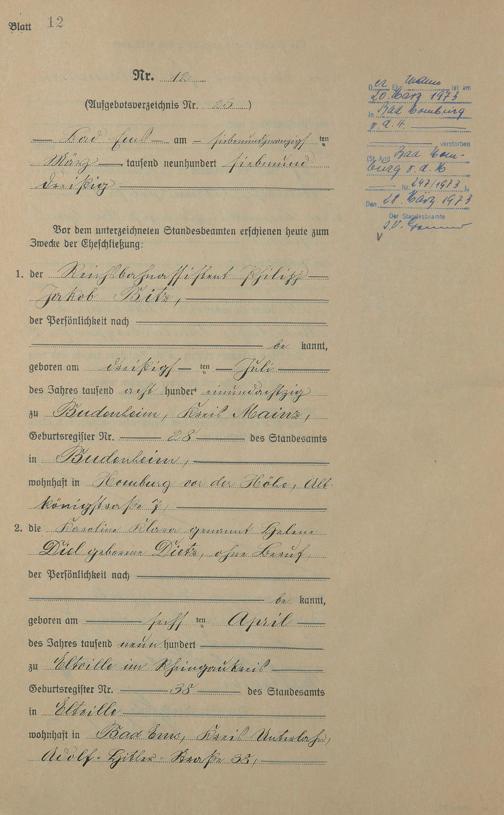 Blatt 12
Nr. 12
(Aufgebotsverzeichnis Nr. 25)
Bad Ems am siebenundzwanzigsten
März tausend neunhundert siebenund
dreißig
Vor dem unterzeichneten Standesbeamten erschienen heute zum
Zwecke der Eheschließung:
1. der Reichsbahnassistent Philipp
Jakob Bitz,
der Persönlichkeit nach
be kannt,
geboren am dreißigsten Juli
des Jahres tausend acht hundert einundachtzig
zu Budenheim, Kreis Mainz,
Geburtsregister Nr. 28 des Standesamts
in Budenheim,
wohnhaft in Homburg vor der Höhe, Alt-
königstraße 7,
2. die Karoline Klara genannt Helene
Diel geborene Dietz, ohne Beruf
der Persönlichkeit nach
be kannt,
geboren am sechsten April
des Jahres tausend neun hundert
zu Eltville im Rheingaukreis
Geburtsregister Nr. 38 des Standesamts
in Eltville
wohnhaft in Bad Ems, Kreis Unterlahn,
Adolf-Hitler-Straße 35,
Der Ehemann ist am
20. März 1973
in Bad Homburg
v.d.H.
verstorben
(St. Amt Bad Hom-
burg v.d.H
Nr. 247/1973)
Den 28. März 1973
Der Standesbeamte
I.V.